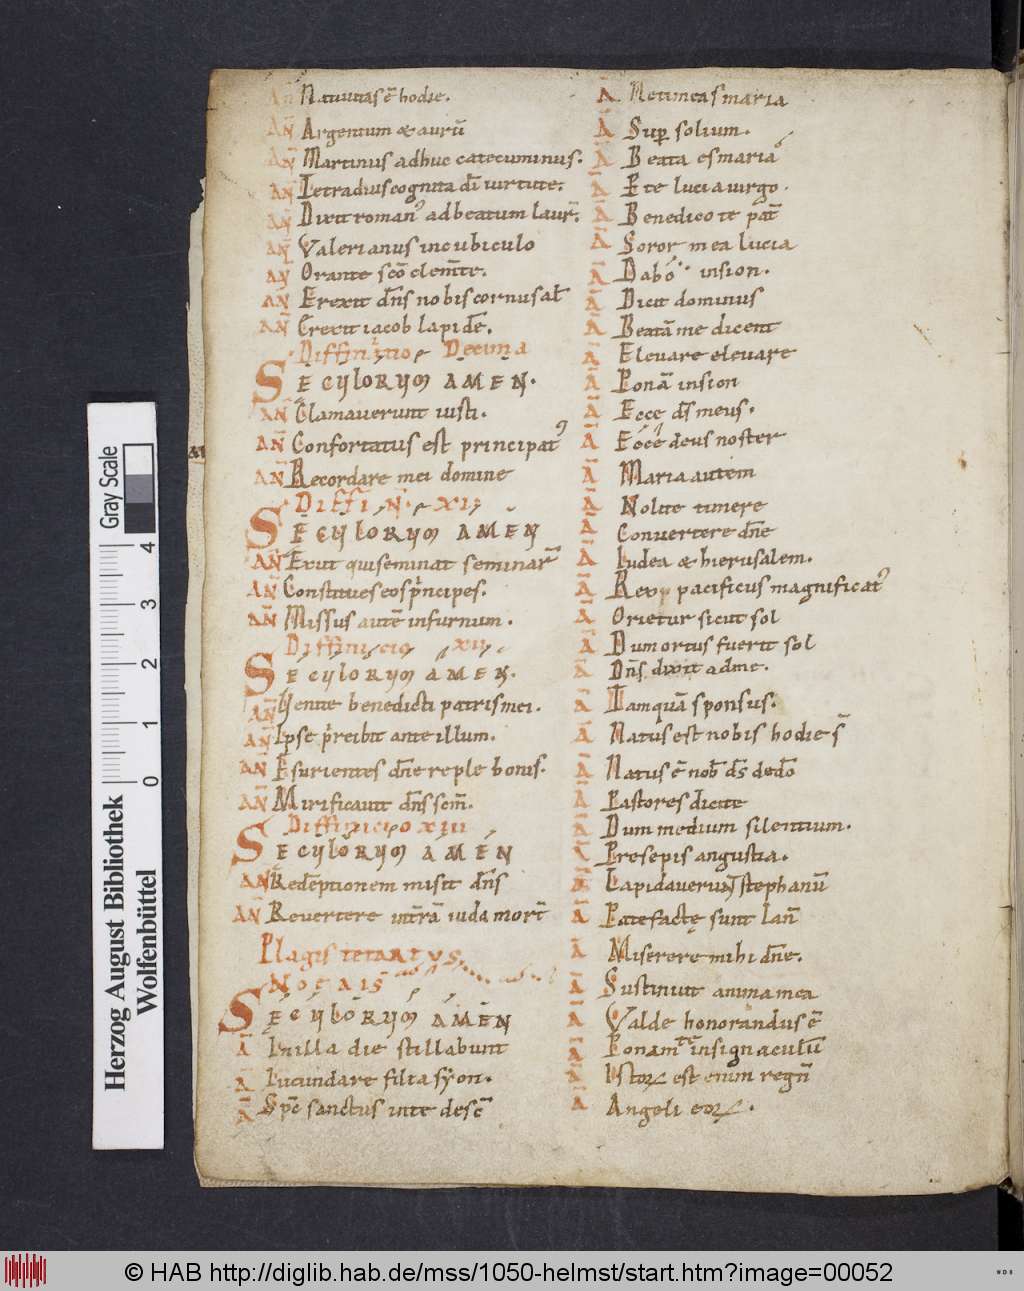 AN Natiuitas ē hodie.
AN Argentum & aurū
AN Martinus adhuc catecuminus.
AN Letradius cognita dī uirtute.
AN Dixit roman᾽ ad beatum laur̄.
AN Valerianus incubiculo
AN Orante sc̄o clem̄te.
AN Erexit dn̄s nobis cornu sal̄
AN Erexit iacob lapidē.
Diffinitio Decima
SECULORUM AMEN.
AN Clamauerunt iusti.
AN Confortatus est principat᾽
AN Recordare mei domine
Diffin. XI
SECULORUM AMEN
AN Exiit qui seminat seminar̄
AN Constitues eos p̄ncipes.
AN Missus autē infurnum.
Diffinicio XII
SECULORUM AMEN.
AN Uenite benedicti patris mei.
AN Ipse p̄reibit ante illum.
AN Esurientes dn̄e reple bonis.
AN Mirificauit dn̄s sc̄m.
Diffinicio XIII
SECULORUM AMEN
AN Redēptionem misit dn̄s
AN Reuertere int̄rā iuda mort̄
Plagis tetartus.
Nogais
SECULORUM AMEN
A Inilla die stillabunt
A Iucundare filia syon.
A Sp̄c sanctus inte desc̄
A Netimeas maria
A Sup solium.
A Beata es maria
A Ete lucia uirgo.
A Benedico te pat̄
A Soror mea lucia
A Dabo insion.
A Dicit dominus
A Beatā me dicent
A Eleuare eleuare
A Ponā insion
A Ecce ds̄ meus.
A Ecce deus noster
A Maria autem
A Nolite timere
A Conuertere dn̄e
A Iudea & hierusalem.
A Rex pacificus magnificat᾽
A Orietur sicut sol
A Dum ortus fuerit sol
A Dn̄s dixit adme.
A Tamquā sponsus.
A Natus est nobis hodie s̄
A Natus ē nob̄ ds̄ dedō
A Pastores dicite
A Dum medium silentium.
A Presepis angustia.
A Lapidauerunt stephanū
A Patefactę sunt Ian̄
A Miserere mihi dn̄e.
A Sustinuit anima mea
A Valde honorandus ē
A Ponam te insignaculū
A Istoꝝ est enim regn̄
A Angeli eoꝝ.
Gray Scale
4
3
2
1
0
Herzog August Bibliothek
Wolfenbüttel
© HAB http://diglib.hab.de/mss/1050-helmst/start.htm?image=00052